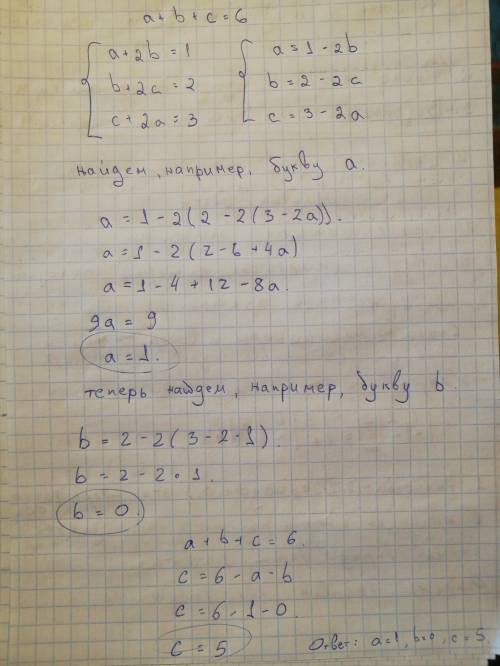 a + b + c = 6
a + 2b = 1
b + 2c = 2
c + 2a = 3
a = 1 - 2b
b = 2 - 2c
c = 3 - 2a
найдем, например, букву a.
a = 1 - 2(2 - 2(3 - 2a)).
a = 1 - 2(2 - 6 + 4a)
a = 1 - 4 + 12 - 8a.
9a = 9
a = 1.
теперь найдем, например, букву b
b = 2 - 2(3 - 2·1).
b = 2 - 2·1.
b = 0.
a + b + c = 6.
c = 6 - a - b
c = 6 - 1 - 0.
c = 5
Ответ: a=1, b=0, c=5.